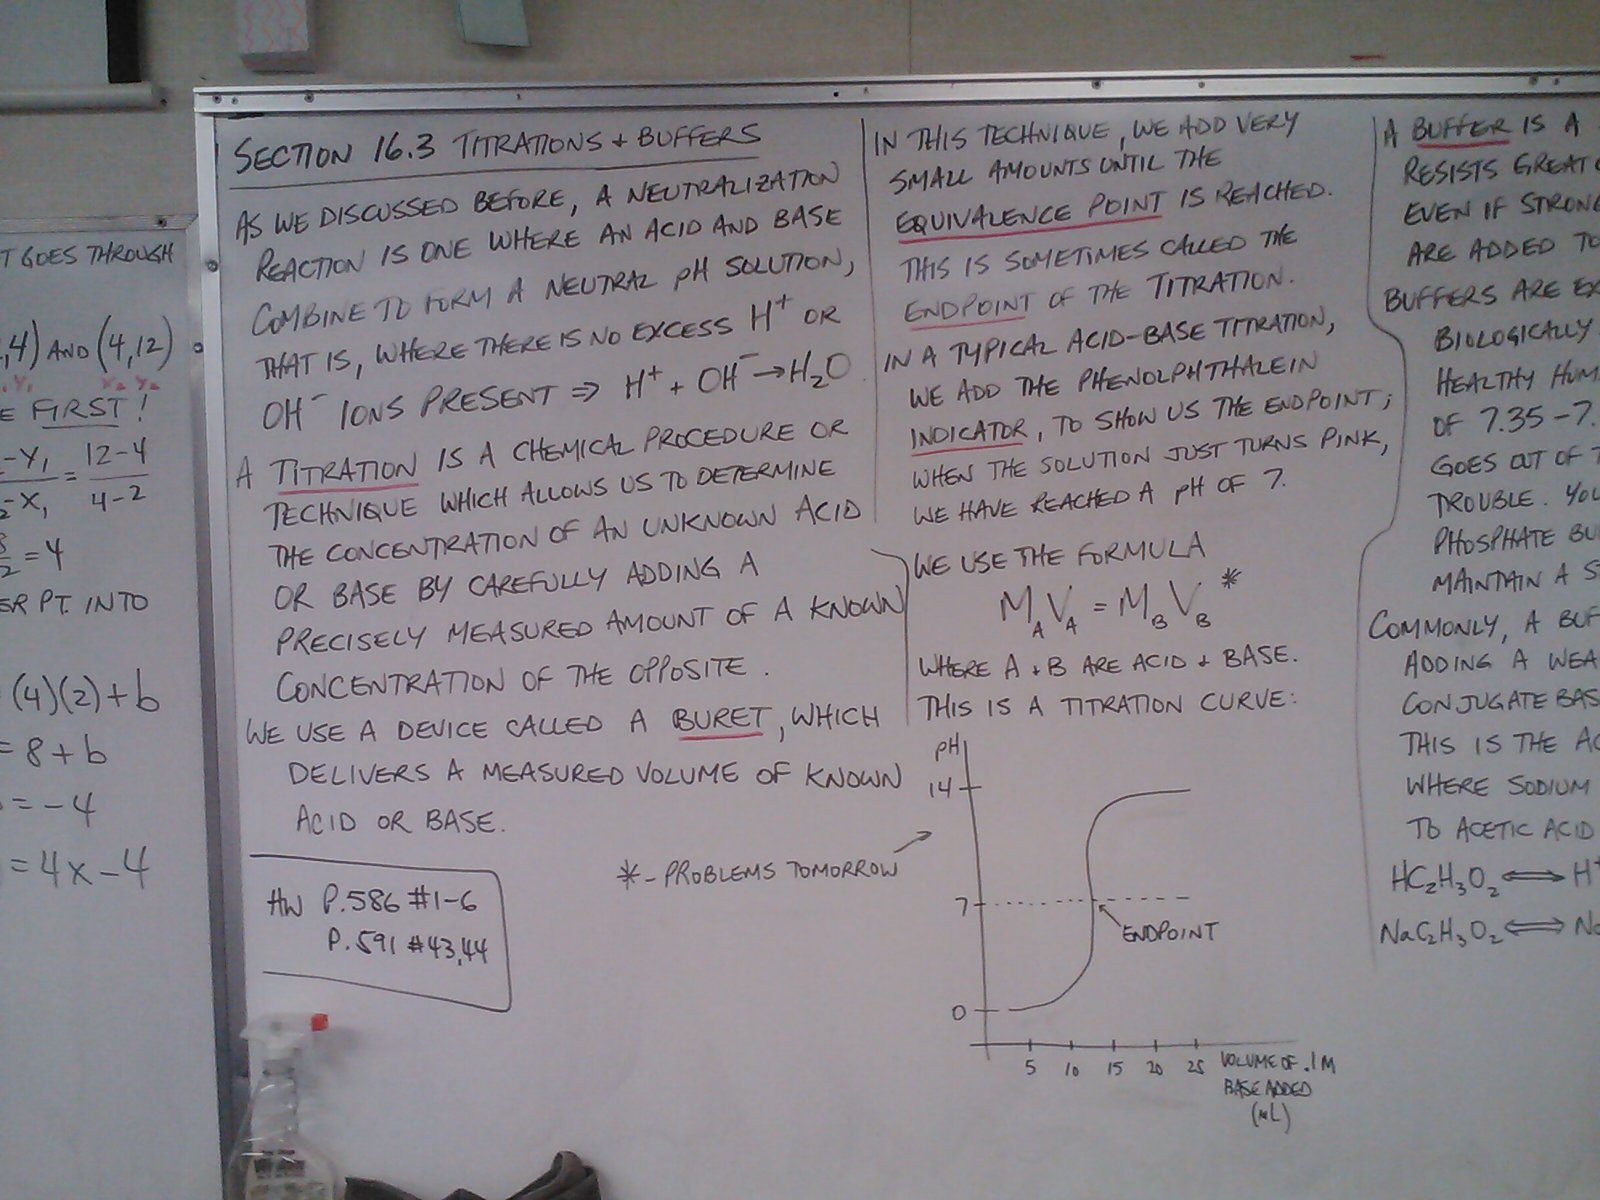 T GOES THROUGH
,4) AND (4,12)
E FIRST!
-Y₁ = 12-4
-X₁ 4-2
=4
ER PT. INTO
(4)(2)+b
= 8+b
=-4
=4x-4
SECTION 16.3 TITRATIONS + BUFFERS
AS WE DISCUSSED BEFORE, A NEUTRALIZATION
REACTION IS ONE WHERE AN ACID AND BASE
COMBINE TO FORM A NEUTRAL pH SOLUTION,
THAT IS, WHERE THERE IS NO EXCESS H⁺ OR
OH⁻ IONS PRESENT ⇒ H⁺ + OH⁻ → H₂O
A TITRATION IS A CHEMICAL PROCEDURE OR
TECHNIQUE WHICH ALLOWS US TO DETERMINE
THE CONCENTRATION OF AN UNKNOWN ACID
OR BASE BY CAREFULLY ADDING A
PRECISELY MEASURED AMOUNT OF A KNOWN
CONCENTRATION OF THE OPPOSITE.
WE USE A DEVICE CALLED A BURET, WHICH
DELIVERS A MEASURED VOLUME OF KNOWN
ACID OR BASE.
HW P.586 #1-6
P.591 #43,44
*- PROBLEMS TOMORROW
IN THIS TECHNIQUE, WE ADD VERY
SMALL AMOUNTS UNTIL THE
EQUIVALENCE POINT IS REACHED.
THIS IS SOMETIMES CALLED THE
ENDPOINT OF THE TITRATION.
IN A TYPICAL ACID-BASE TITRATION,
WE ADD THE PHENOLPHTHALEIN
INDICATOR, TO SHOW US THE ENDPOINT;
WHEN THE SOLUTION JUST TURNS PINK,
WE HAVE REACHED A pH OF 7.
WE USE THE FORMULA
M_A V_A = M_B V_B *
WHERE A + B ARE ACID + BASE.
THIS IS A TITRATION CURVE:
pH
14
7
ENDPOINT
0
5 10 15 20 25 VOLUME OF .1M
BASE ADDED
(mL)
A BUFFER IS A
RESISTS GREAT
EVEN IF STRONG
ARE ADDED TO
BUFFERS ARE EX
BIOLOGICALLY.
HEALTHY HUM
OF 7.35-7.
GOES OUT OF T
TROUBLE. YOU
PHOSPHATE BU
MAINTAIN A S
COMMONLY, A BUF
ADDING A WEA
CONJUGATE BAS
THIS IS THE AC
WHERE SODIUM
TO ACETIC ACID
HC₂H₃O₂ ⟺ H⁺
NaC₂H₃O₂ ⟺ Na